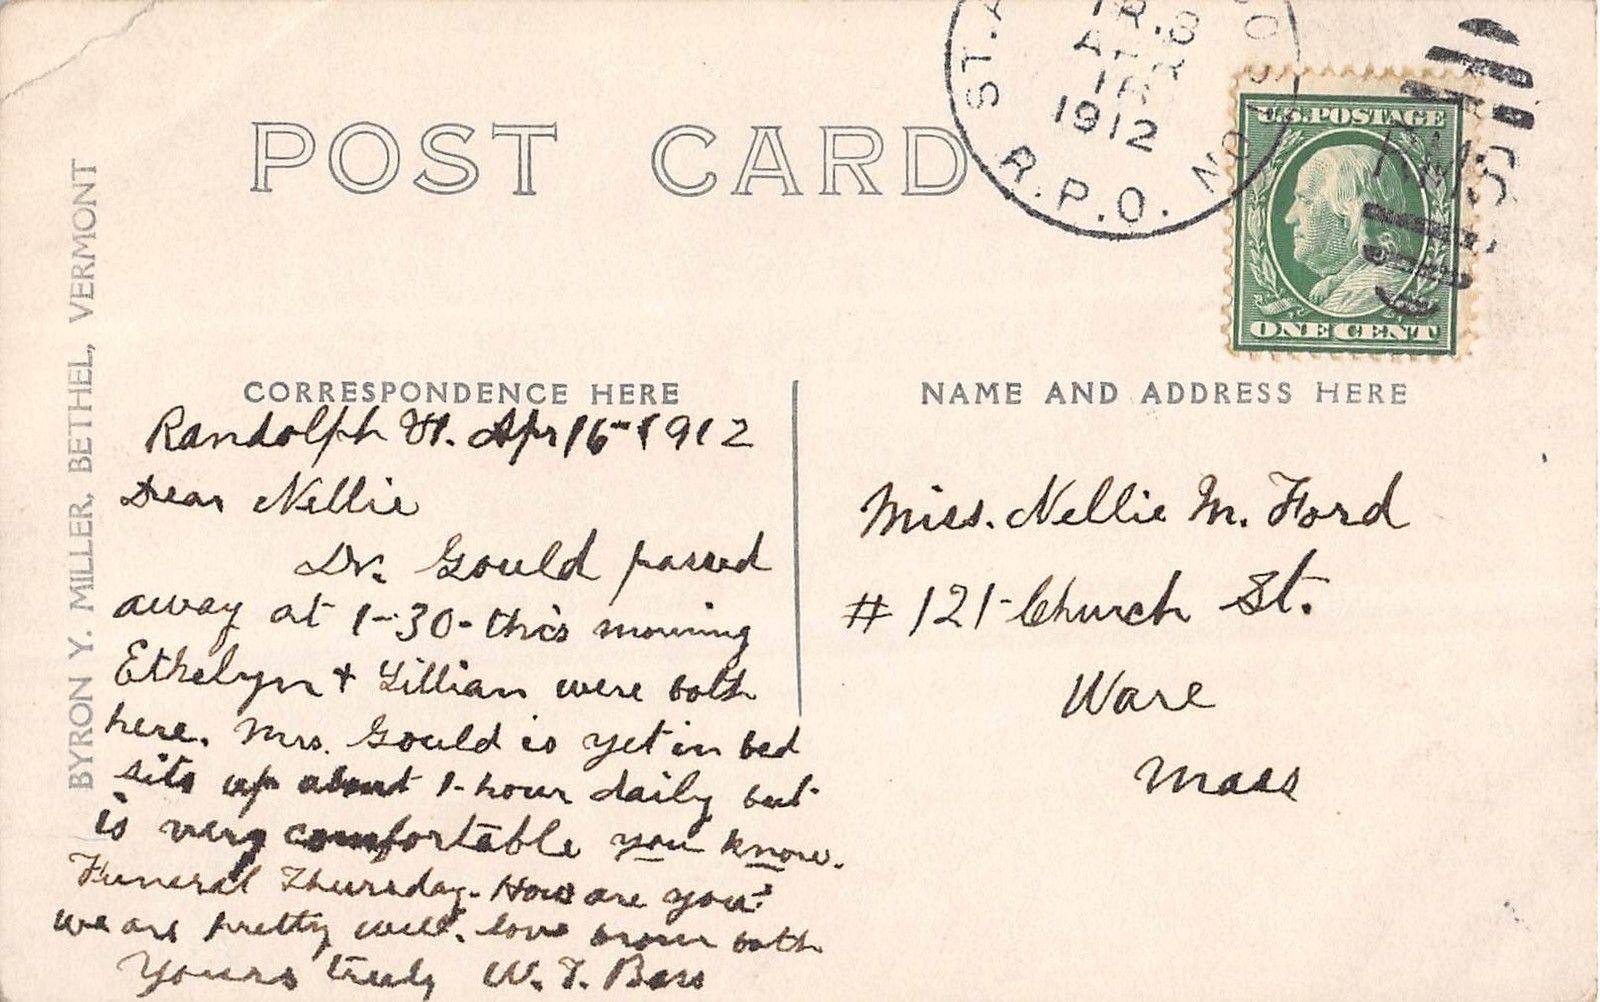 POST CARD
ST. A
TR. 8
APR
16
1912
R.P.O.
NO
RMS
U.S. POSTAGE
ONE CENT
BYRON Y. MILLER, BETHEL, VERMONT
CORRESPONDENCE HERE
NAME AND ADDRESS HERE
Randolph Vt. Apr 16-1912
Dear Nellie
Dr. Gould passed
away at 1-30- this morning
Ethelyn + Lillian were both
here. Mrs. Gould is yet in bed
sits up about 1-hour daily but
is very comfortable you know.
Funeral Thursday. How are you?
we are pretty well. love both
Yours truly W. T. Bass
Miss. Nellie M. Ford
# 121- Church St.
Ware
Mass